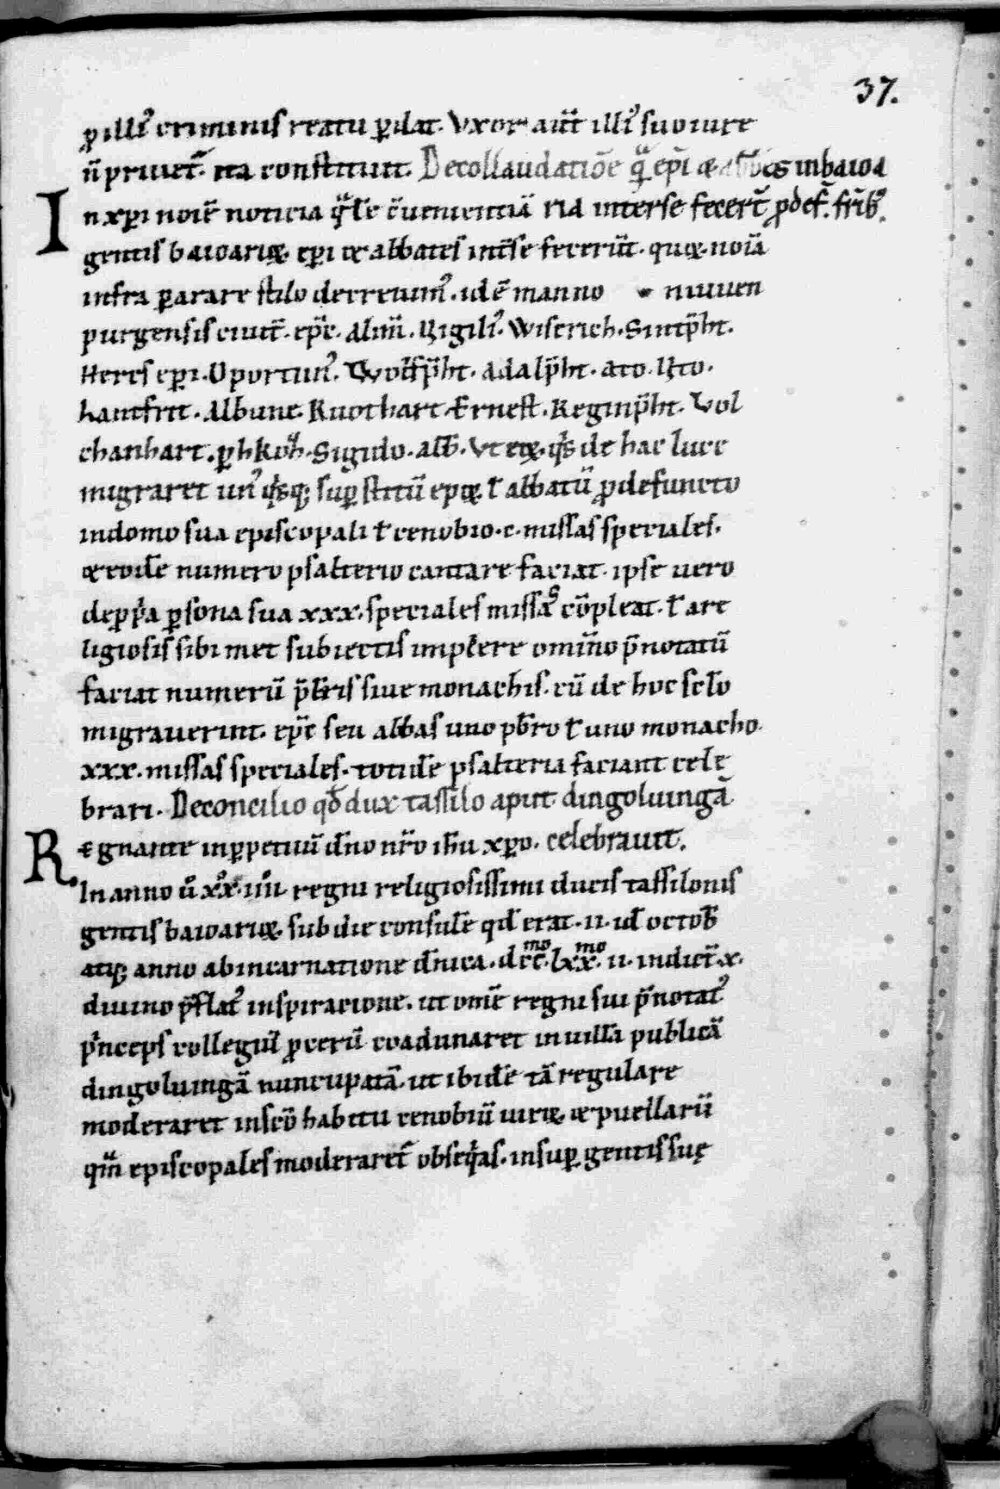 37.
ꝑ illiꝰ criminis reatu ꝑdat. Vxor aut̄ illiꝰ suo iure
n̄ priuet᷑. ita constituit. De collaudatiōe quā ep̄i & abb̄es in baioa
In xp̄i noīe noticia q̄le c̄uenientiā ria inter se fecer̄t ꝓ def. fr̄ibꝰ.
gentis baioariæ. ep̄i & abbates int̄ se fecerūt. quæ. noīa
infra ꝑarare stilo decreuimꝰ. idē manno niuuen
purgensis ciuit̄. ep̄c. Alim̄. Uigiliꝰ. Wiserich. Sintp̄ht.
Heres ep̄i. Oportunꝰ. Wolfp̄ht. Adalp̄ht. Ato. Uto.
hantfrit. Albune. Ruothart. Ernest. Reginp̄ht. Vol
chanhart. Sigido. abb̄. Vt eoꝝ. q̄s de hac luce
migraret unꝰ q̄sqꝫ suꝑstitū epoꝝ. ł abbatū ꝓ defuncto
in domo sua episcopali ł cenobio. c. missas speciales.
& eodē numero psalterio cantare faciat. ipse uero
de ꝓp̄a ꝑsona sua xxx. speciales missas cōpleat. ł a re
ligiosis sibi met subiectis implere omīno p̄notatū
faciat numerū p̄bris siue monachis. cū de hoc sclo
migrauerint. ep̄c seu abbas uno pb̄ro ł uno monacho.
xxx. missas speciales. totidē psalteria faciant cele
brari. De concilio qd̄ dux tassilo aput dingoluingā
Regnante in ꝑpetuū dn̄o nr̄o ih̄u xp̄o. celebrauit.
In anno ū xxͦ. iiū regni religiosissimi ducis tassilonis
gentis baioariæ. sub die consulē qd̄ erat. ii. id̄ octob̄
atqꝫ anno ab incarnatione dn̄ica. dccͫͦ. lxxͫͦ. ii. indict̄. x.
diuino p̄flatꝰ inspiracione. ut om̄e regni sui p̄notatꝰ
p̄nceps collegiū ꝓcerū coadunaret in uillā publicā
dingoluingā nuncupatā. ut ibidē tā regulare
moderaret in sc̄o habitu cenobiū uiroꝝ. & puellarū
qm̄ episcopales moderaret᷑ obseq̄as. insuꝑ gentis suę